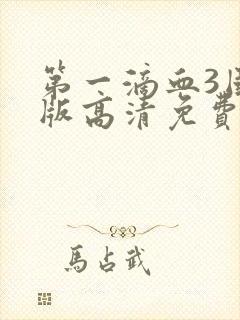 第一滴血3国
版高清免费
馬占武